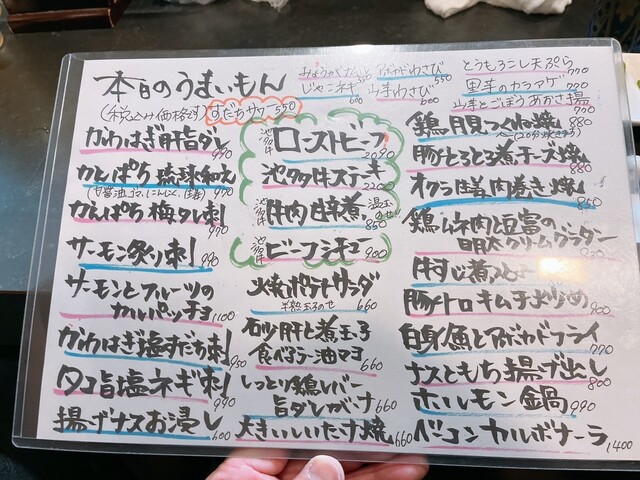 本日のうまいもん
(税込み価格です) すだちサワー550
かわはぎ肝指ダレ 990
かんぱち琉球和え 990
かんぱち梅タレ刺 990
サーモン炙り刺 990
サーモンとフルーツの
カルパッチョ 1100
かわはぎ塩すだち刺 950
タコ旨塩ネギ刺 990
揚げナスお浸し 600
じゃこネギ 600
アボカドわさび 550
山芋わさび 600
ローストビーフ 2090
池多牛ステーキ 2200
牛肉旨煮 温玉のせ!! 850
ビーフシチュー 900
焼ポテトサラダ
半熟玉子のせ 660
砂肝と煮玉子
食べるラー油マヨ 660
しっとり鶏レバー
旨ダレがーナ 660
大きいしいたけ焼 660
とうもろこし天ぷら 770
里芋のカラアゲ 770
山芋とごぼうあおさ揚 770
鶏月見つくね焼 880
豚とろとろ煮チーズ焼 880
オクラ豚肉巻き焼 860
鶏ムネ肉と豆富の
明太クリームグラタン
牛すじ煮
豚トロキムチ炒め 900
白身魚とアボカドフライ 770
ナスともち揚げ出し 800
ホルモン鍋 990
ベーコンカルボナーラ 1400